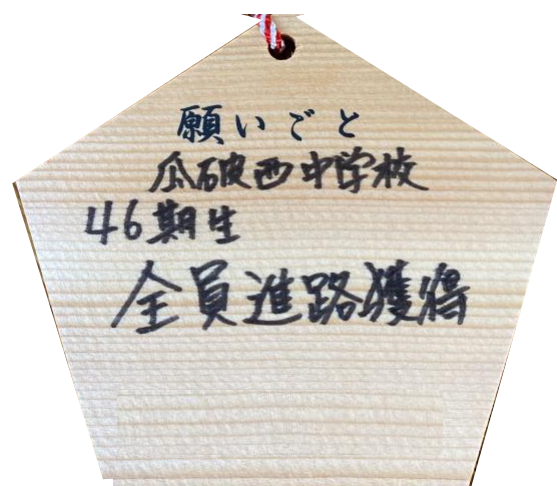 願いごと
瓜破西中学校
46期生
全員進路獲得